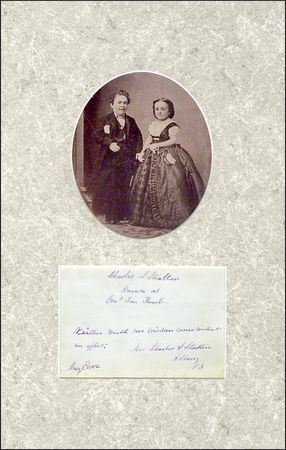 Charles S Stratton
Known as
Gen'l Tom Thumb
Neither worth nor Wisdom comes without
an effort,
Mrs Charles S Stratton
Albany